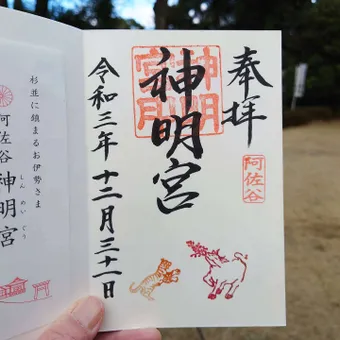 奉拝
阿佐谷
神明宮
神明
令和三年十二月三十一日
杉並に鎮まるお伊勢さま
阿佐谷
神明宮
しんめいぐう